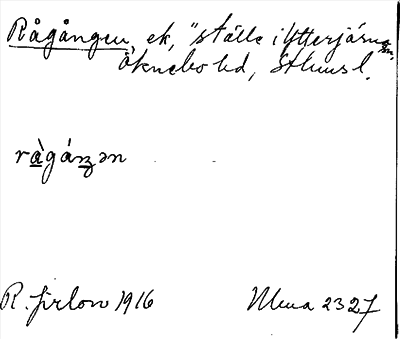 Rågången, ek, "ställe i Ytterjärna sn,
Öknebo hd, Sthms l.
ràgáŋən
R. Jirlow 1916 Muua 2327